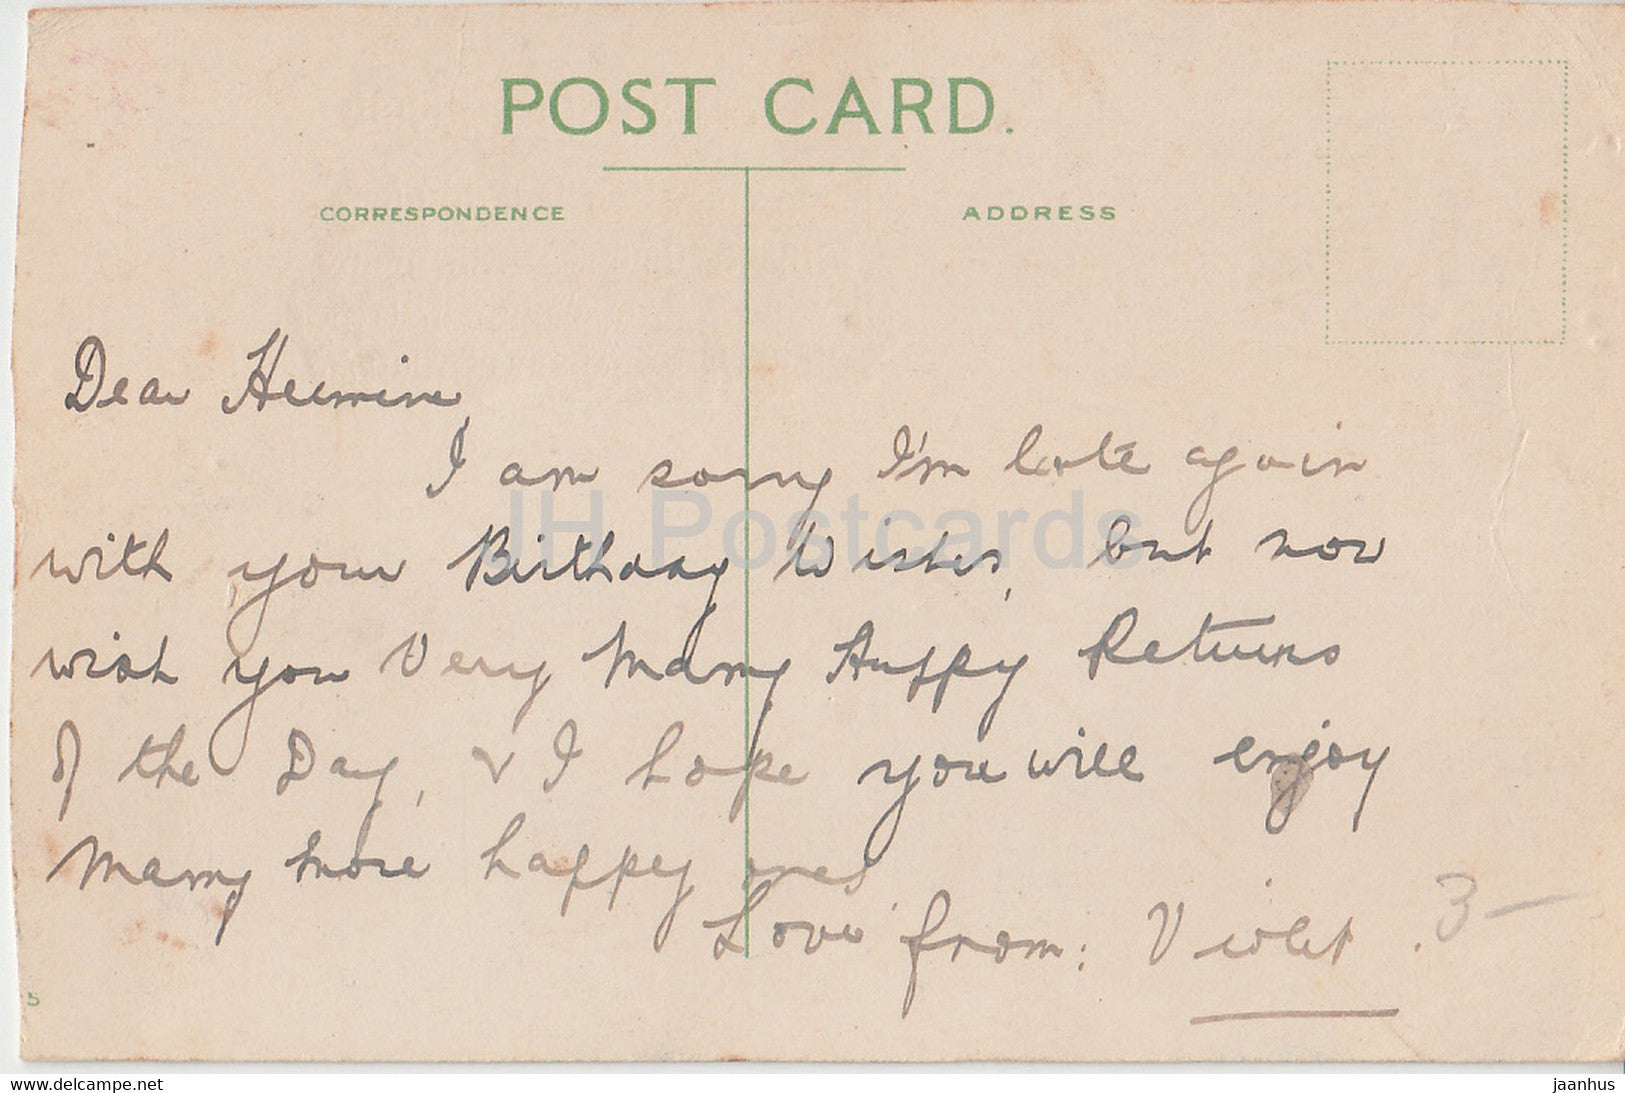 POST CARD.
CORRESPONDENCE
ADDRESS
Dear Hermine,
I am sorry I'm late again
with your Birthday Wishes, but now
wish you Very Many Happy Returns
of the Day, & I hope you will enjoy
many more happy ones
Love from: Violet.
3—
5
JH Postcards
www.delcampe.net
jaanhus